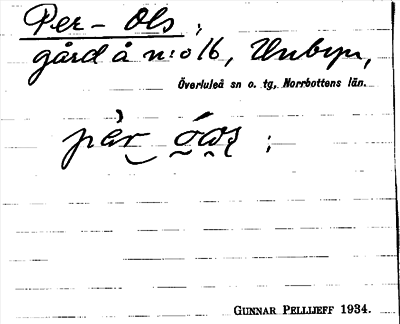 Per-Ols;
gård å n:o 16, Unbyn,
Överluleå sn o. tg, Norrbottens län.
GUNNAR PELLIJEFF 1934.